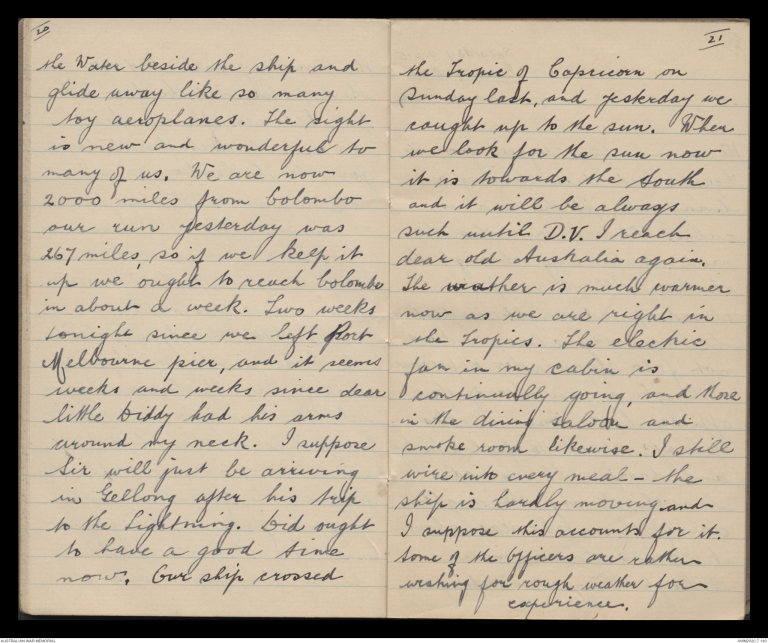 20
the Water beside the ship and
glide away like so many
toy aeroplanes. The sight
is new and wonderful to
many of us. We are now
2000 miles from Colombo
our run yesterday was
267 miles, so if we keep it
up we ought to reach Colombo
in about a week. Two weeks
tonight since we left Port
Melbourne pier, and it seems
weeks and weeks since dear
little Diddy had his arms
around my neck. I suppose
Sir will just be arriving
in Geelong after his trip
to the Lightning. Did ought
to have a good time
now. Our ship crossed
21
the Tropic of Capricorn on
Sunday last, and yesterday we
caught up to the sun. When
we look for the sun now
it is towards the South
and it will be always
such until D.V. I reach
dear old Australia again.
The weather is much warmer
now as we are right in
the Tropics. The electric
fan in my cabin is
continually going, and those
in the dining saloon and
smoke room likewise. I still
wire into every meal - the
ship is hardly moving and
I suppose this accounts for it.
Some of the Officers are rather
wishing for rough weather for
experience.
AUSTRALIAN WAR MEMORIAL